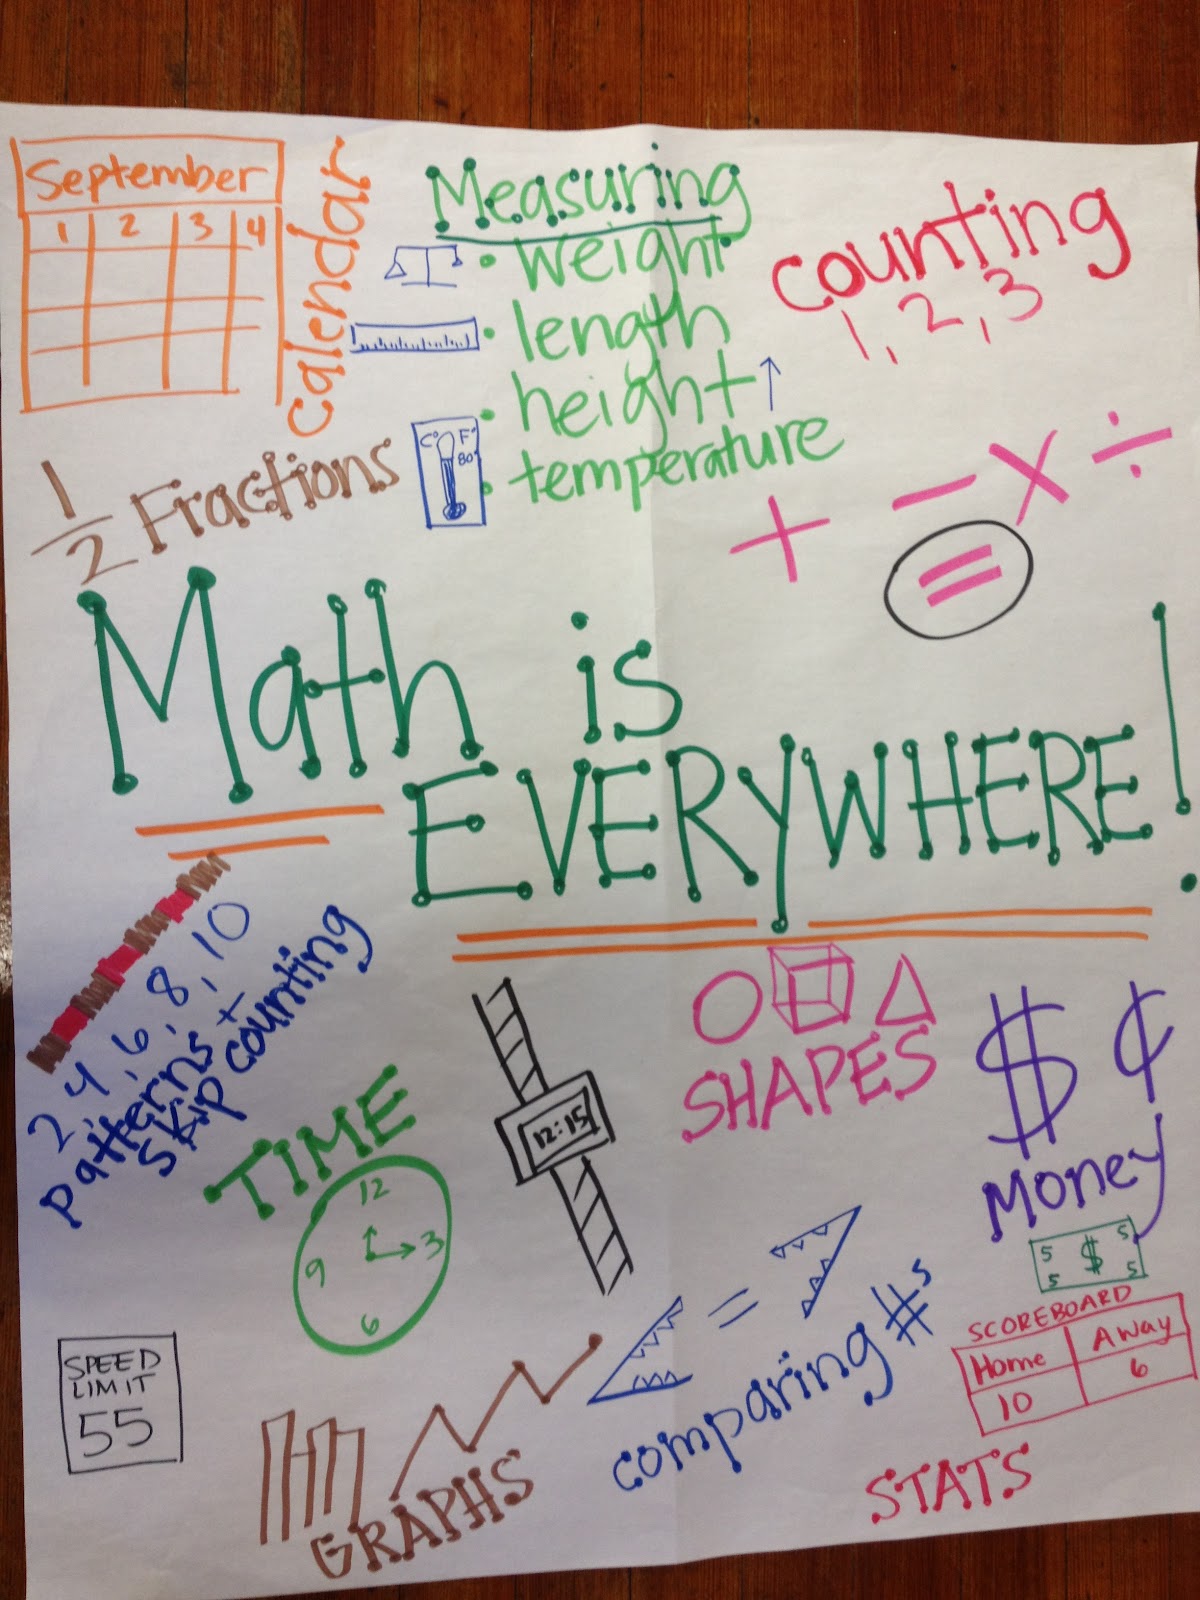 September
1 2 3 4
calendar
Measuring
• weight
• length
• height
• temperature
C° F°
80°
counting
1, 2, 3
1/2 Fractions
+ - × ÷
=
Math is
EVERYWHERE!
2, 4, 6, 8, 10
patterns +
skip counting
TIME
12
9 3
6
12:15
SHAPES
$ ¢
Money
5 $ 5
5 5
SPEED
LIMIT
55
GRAPHS
< = >
comparing #s
SCOREBOARD
Home Away
10 6
STATS